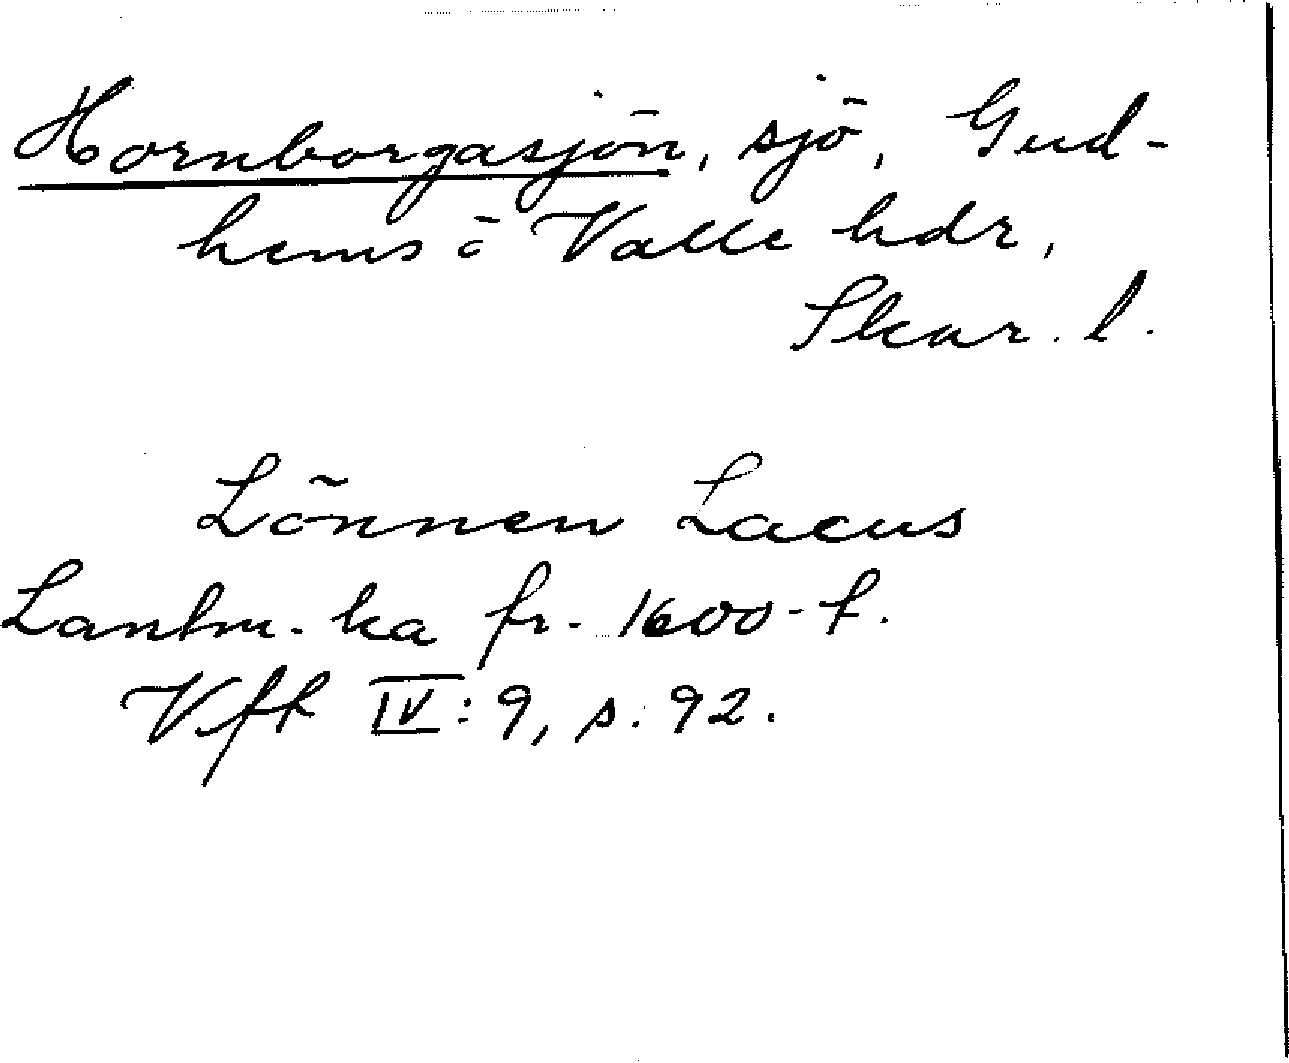 Hornborgasjön, sjö, Gud-
hems o Valle hdr,
Skar. l.
Lönnen Lacus
Lantm. ka fr. 1600-t.
Vft IV: 9, s. 92.